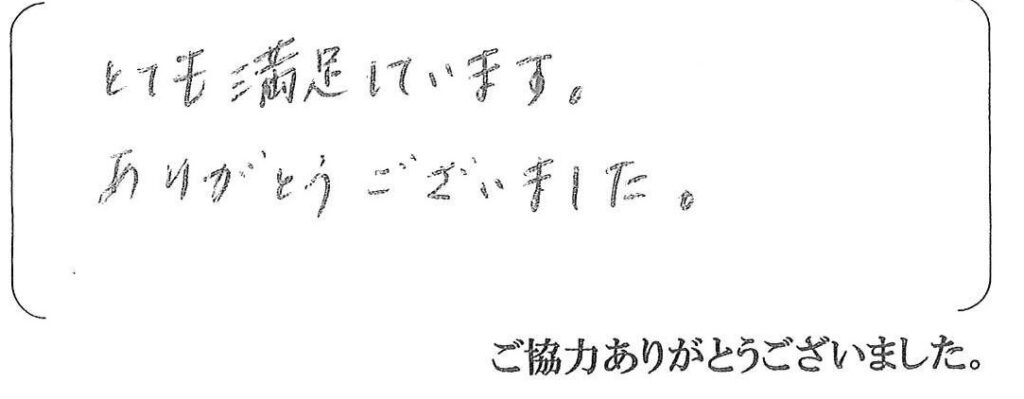 とても満足しています。
ありがとうございました。
ご協力ありがとうございました。